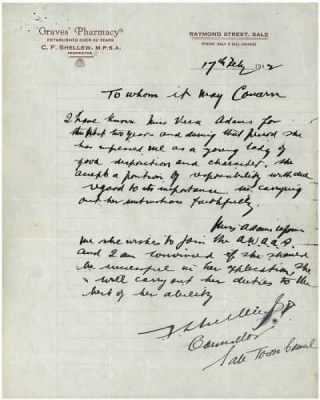 Graves' Pharmacy
ESTABLISHED OVER 50 YEARS
C. F. SHELLEW, M.P.S.A.
PROPRIETOR
RAYMOND STREET, SALE
17th July 1942
To whom it may Concern
I have known Miss Vera Adams for
the past two years and during that period she
has impressed me as a young lady of
good disposition and character. She
accepts a position of responsibility with due
regard to its importance in carrying
out her instructions faithfully.
Miss Adams informs
me she wishes to join the A.W.A.A.S.
and I am convinced if she should
be successful in her application, she
will carry out her duties to the
best of her ability
Councillor
Sale Town Council